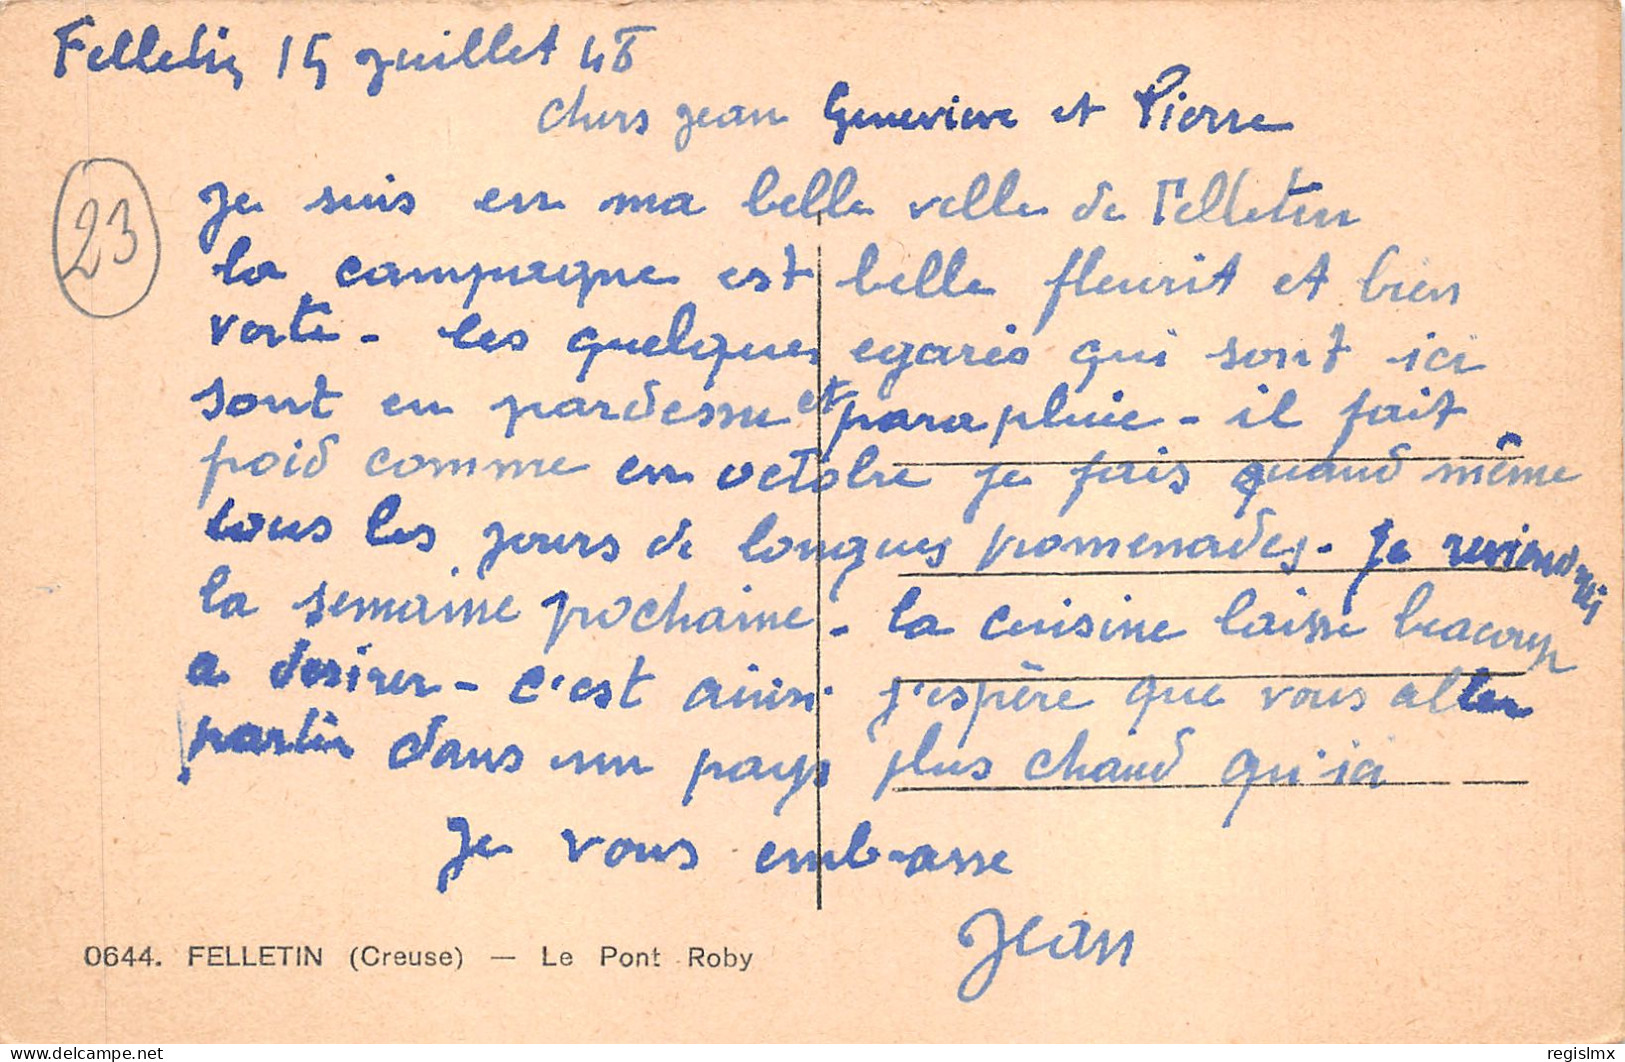 Felletin 15 juillet 48
chers jean Genevieve et Pierre
23
je suis en ma belle ville de Felletin
la campagne est belle fleurit et bien
verte - les quelques egarés qui sont ici
sont en pardessu et parapluie - il fait
froid comme en octobre je fais quand même
tous les jours de longues promenades - je reviendrai
la semaine prochaine - la cuisine laisse beaucoup
a desirer - c'est ainsi j'espère que vous aller
partir dans un pays plus chaud qu'ici
Je vous embrasse
Jean
0644. FELLETIN (Creuse) — Le Pont Roby
delcampe.net
regislmx